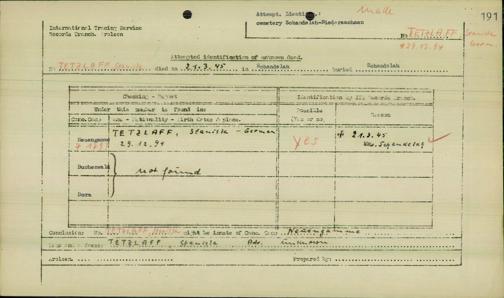 Made
191
International Tracing Service
Records Branch. Arolsen
Attempt. Identific.:
cemetery Schandelah-Niedersachsen
No TETZLAFF
29.12.94
Attempted identification of unknown dead.
No TETZLAFF died on 21.3.45 in Schandelah buried Schandelah
Checking - Report
Identification by ITS Records Branch.
Under this number is found in:
Possible
Reason
Conc. Camp
Name - Nationality - Birth date & place.
(Yes or no)
Neuengamme
TETZLAFF, - German
29.12.94
Yes
+ 21.3.45
Buchenwald
not found
Dora
Conclusion: No. TETZLAFF might be inmate of Conc. Camp Neuengamme
TETZLAFF, unknown
Arolsen.
Prepared by: